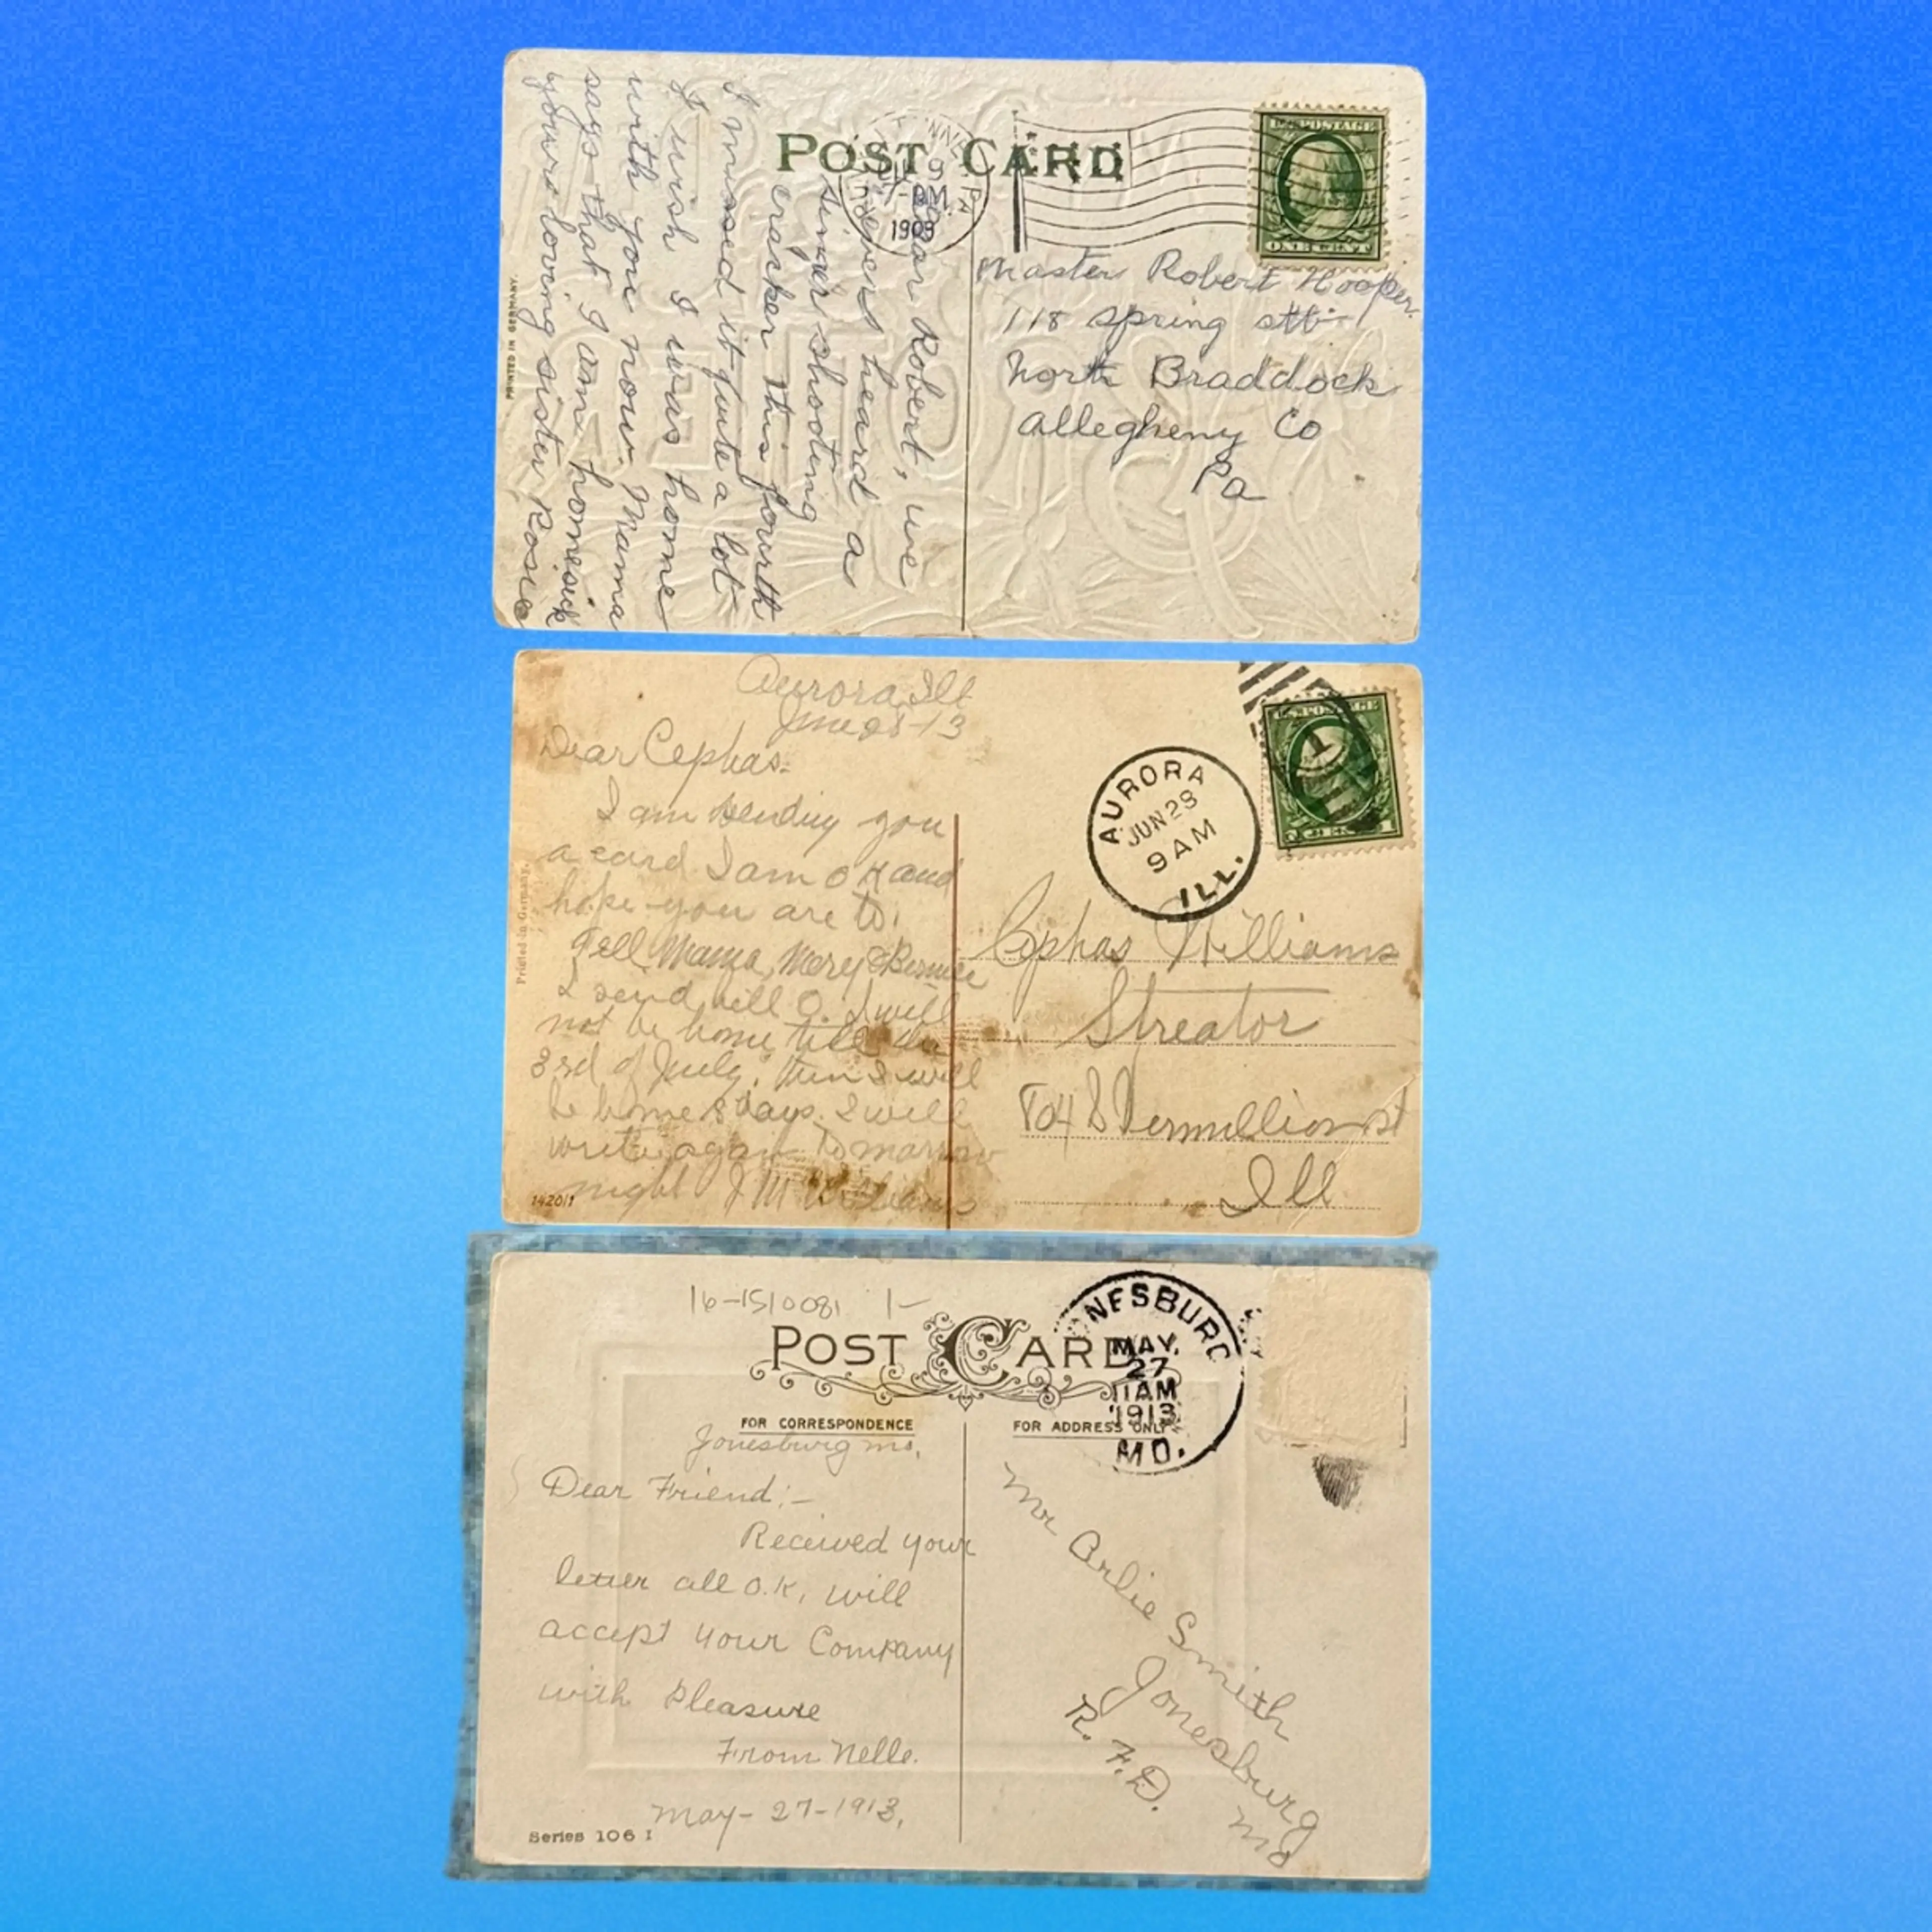 POST CARD
9
1909
PA
U.S. POSTAGE
ONE CENT
Master Robert Hooper.
118 Spring
North Braddock
Allegheny Co
Pa
Dear Robert, we
heard a
shooting
cracker this fourth
I missed it quite a lot
I wish I was home
with you now. Mama
says that I am homesick
yours loving sister Rose
PRINTED IN GERMANY.
Aurora Ill
June 28-13
Dear Cephas-
I am sending you
a card I am OK and
hope you are to.
Tell Mama, Mary & Bernice
I send will O. I will
not be home till the
3rd of July. then I will
be home 8 days. I will
write again tomarrow
night J M Williams
Printed in Germany.
14201
U.S. POSTAGE
AURORA
JUN 28
9 AM
ILL.
Cephas Williams
Streator
Vermillion st
Ill
16-1510081 1-
POST CARD
NESBURG
MAY.
27
11AM
1913
MO.
FOR CORRESPONDENCE
FOR ADDRESS ONLY
Jonesburg mo.
Dear Friend:-
Received your
letter all O.K. will
accept your Company
with Pleasure
From Nelle.
May-27-1913.
Series 106 I
Mr Arlie Smith
Jonesburg
R.F.D.
Mo